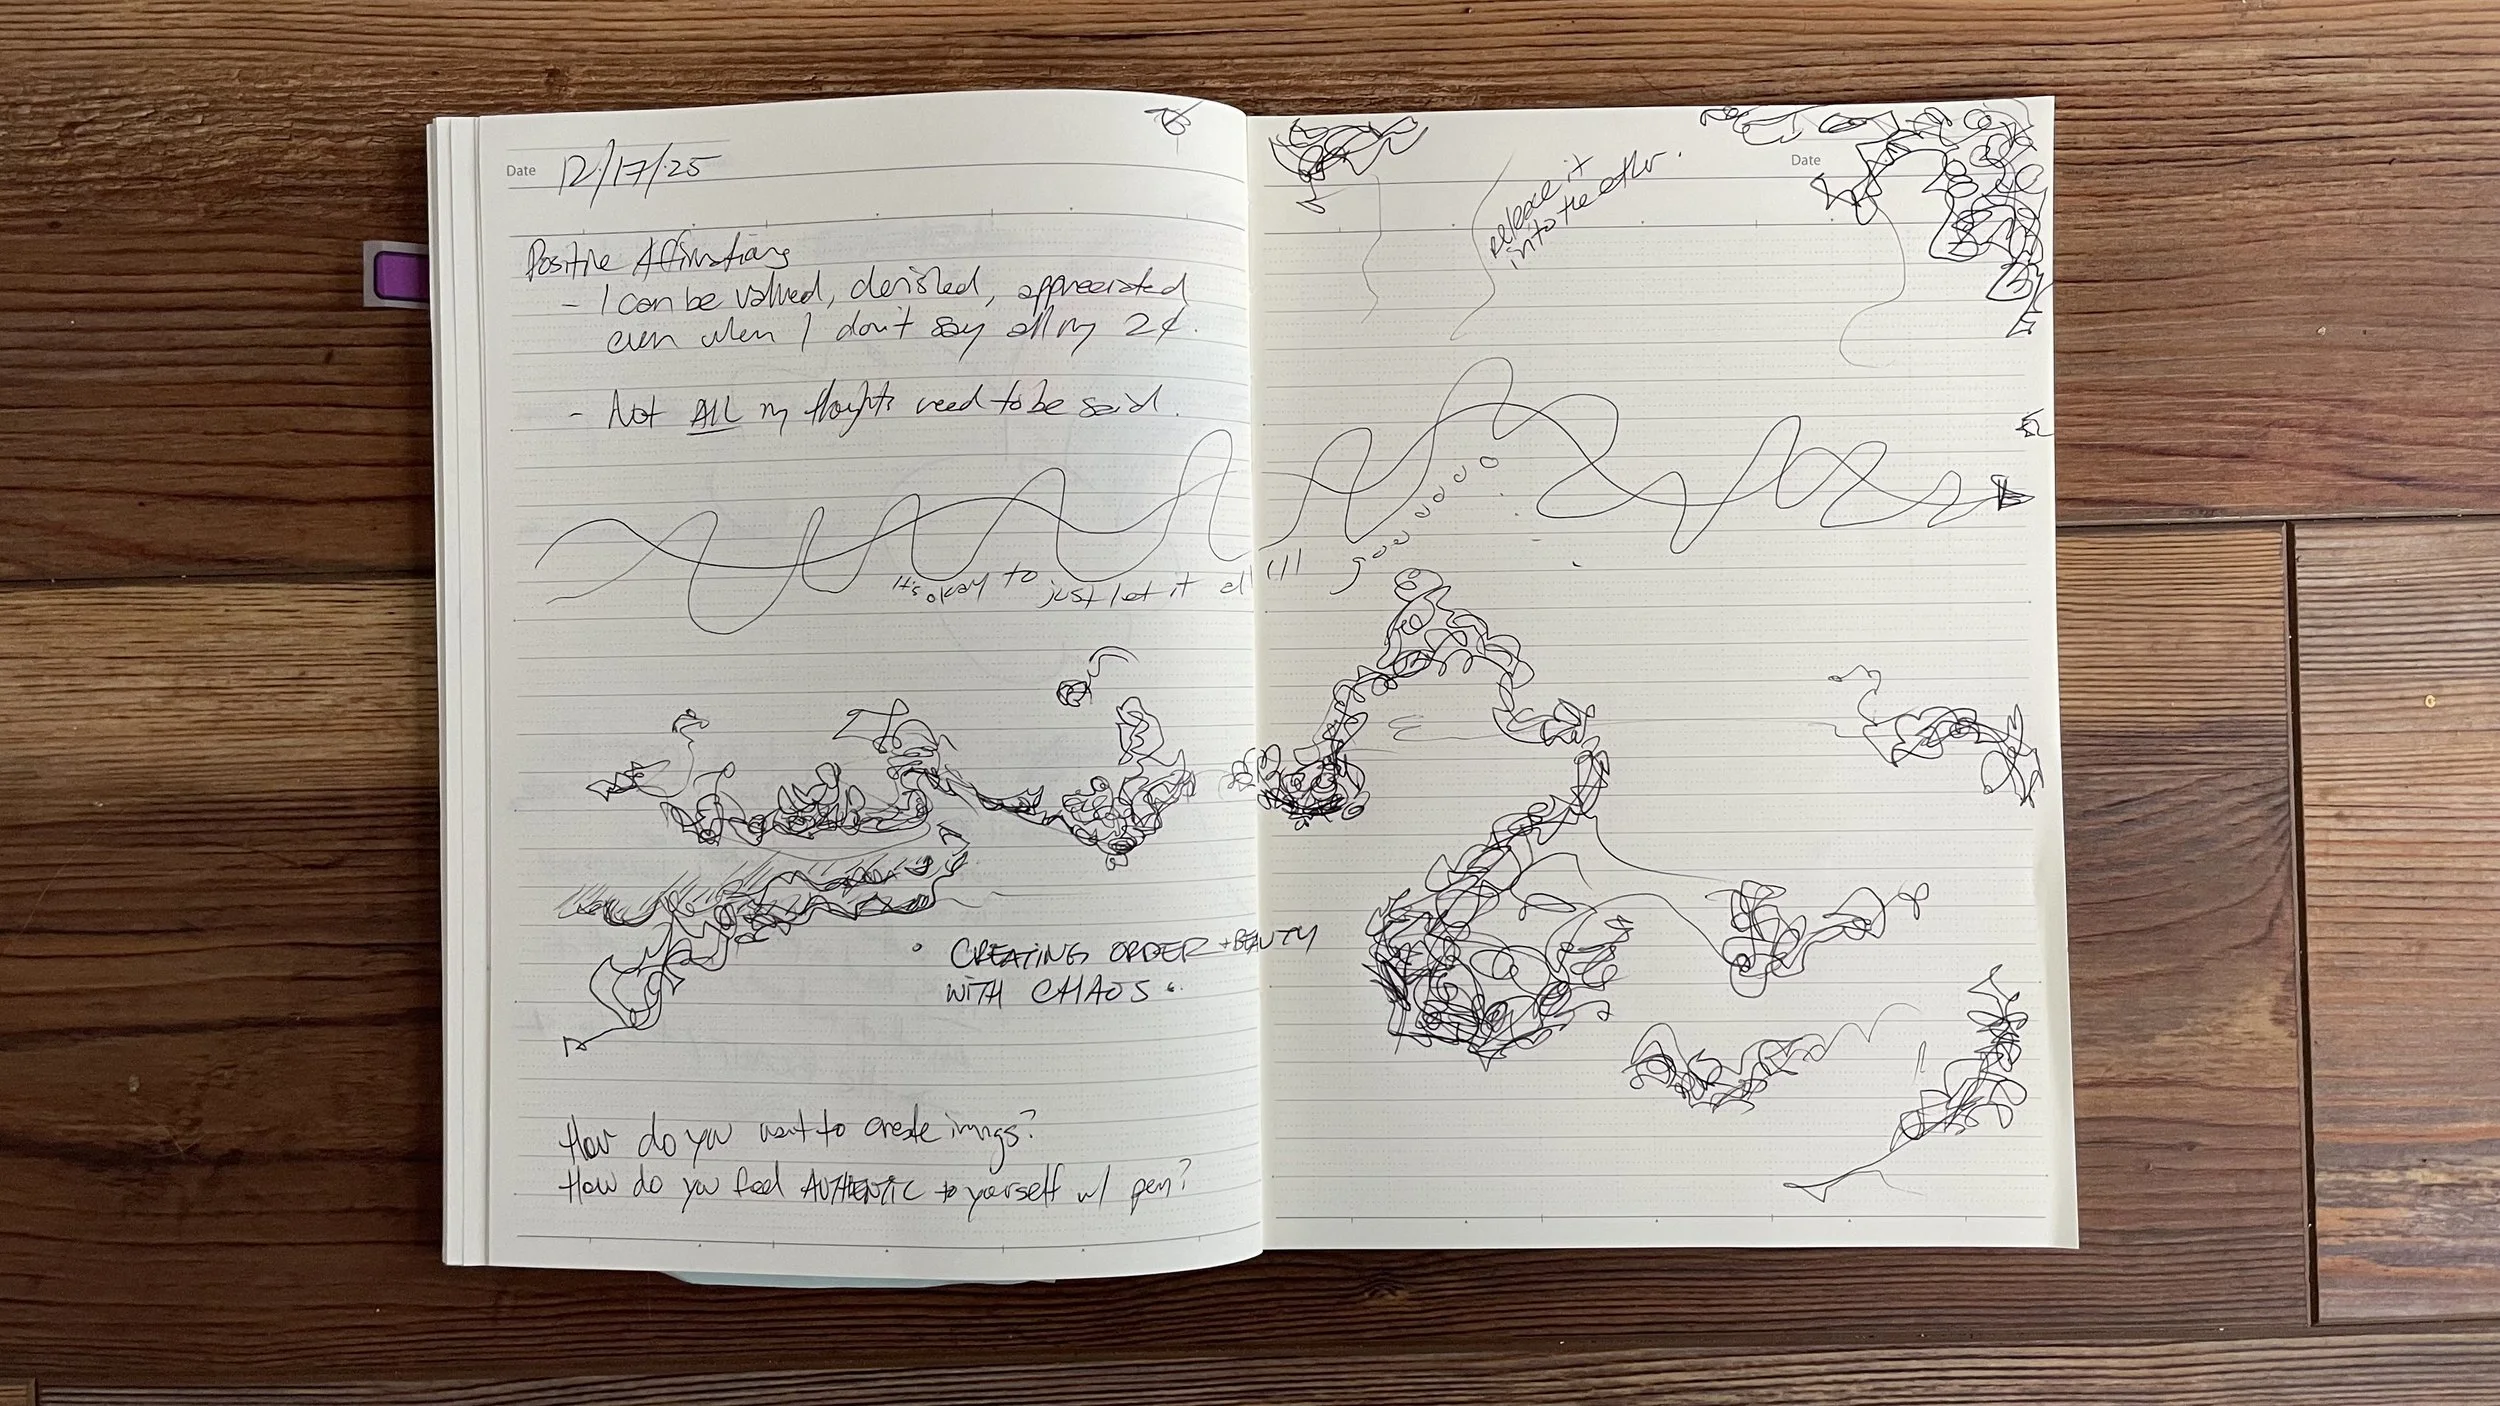 Date 12/17/25
Positive Affirmations
- I can be valued, cherished, appreciated
even when I don't say all my 2¢.
- Not ALL my thoughts need to be said.
Date
release it
into the ether.
It's okay to just let it all gooooooooo
• CREATING ORDER + BEAUTY
WITH CHAOS.
How do you want to create
How do you feel AUTHENTIC to yourself w/ pen?